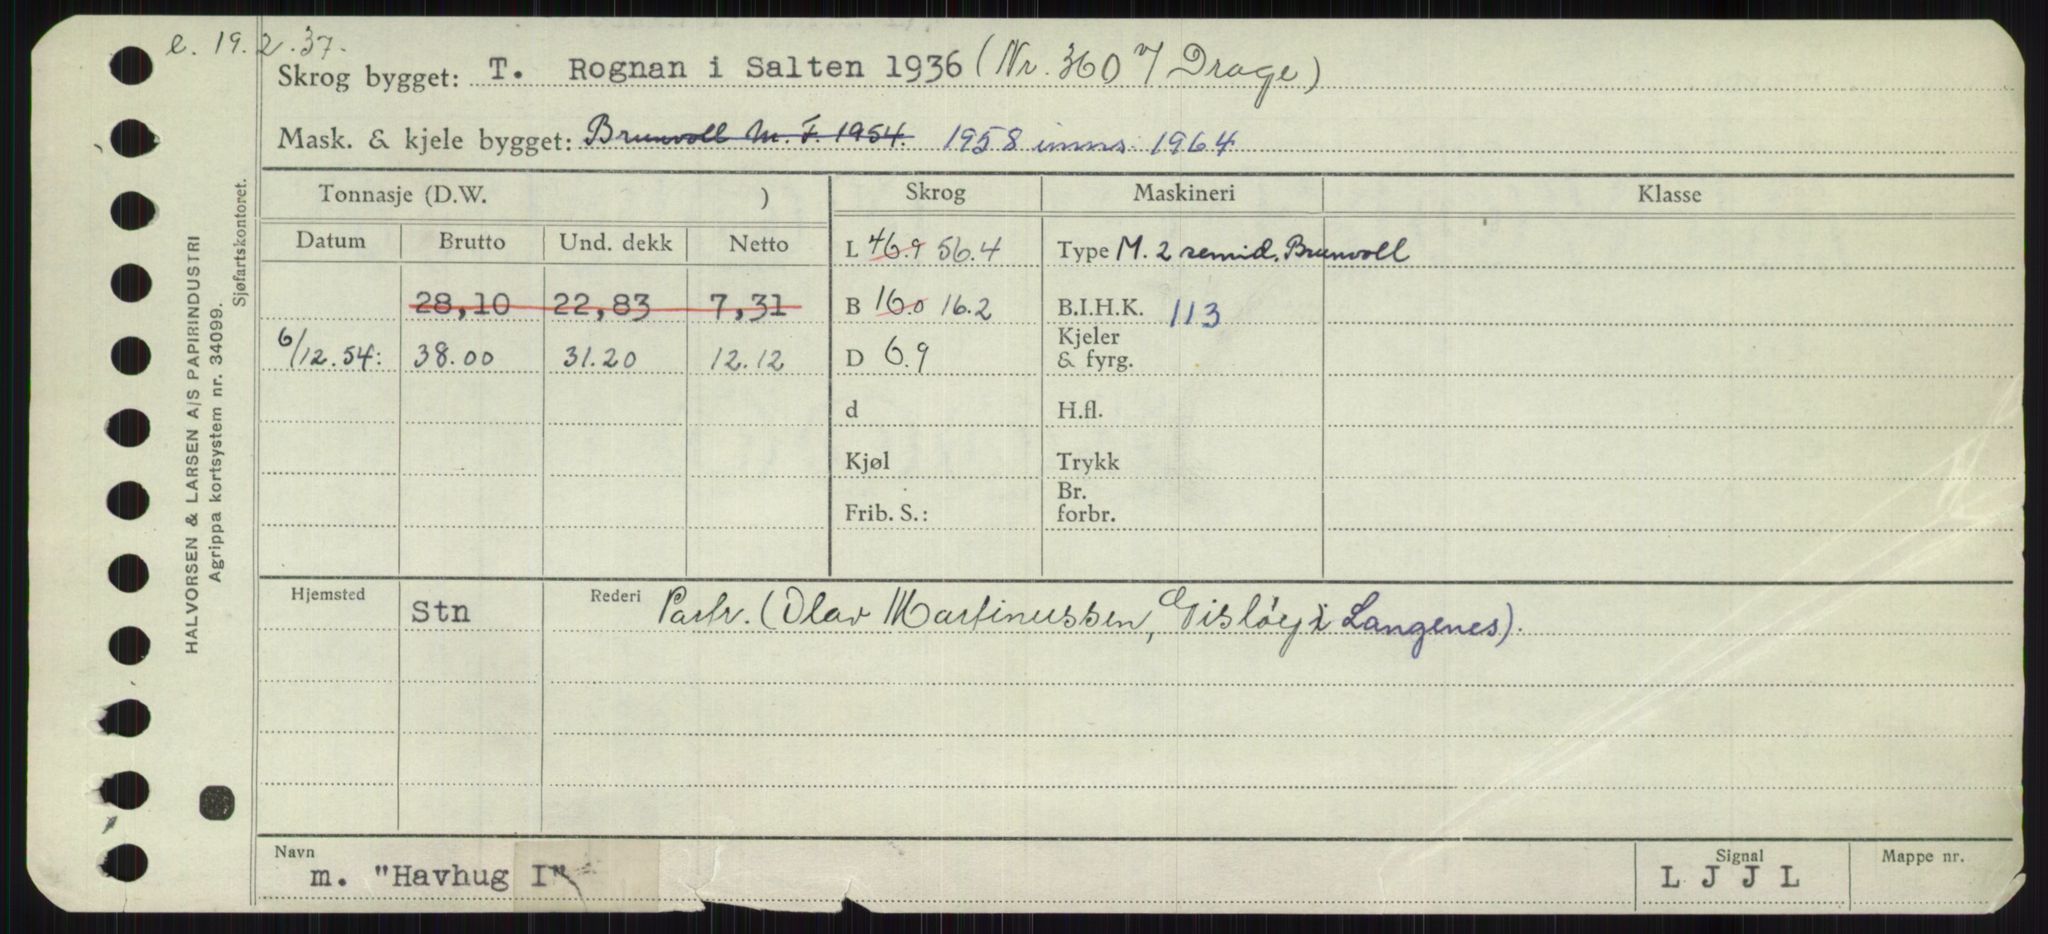 e. 19.2.37.
Skrog bygget: T. Rognan i Salten 1936 (Nr. 360 Drage)
Mask. & kjele bygget: Brunvoll M. F. 1954. 1958 inns. 1964
Tonnasje (D.W. ) Skrog Maskineri Klasse
Datum Brutto Und. dekk Netto L 46.9 56.4 Type M. 2 semid. Brunvoll
28,10 22,83 7,31 B 16.0 16.2 B.I.H.K. 113
6/12.54: 38.00 31.20 12.12 D 6.9 Kjeler & fyrg.
d H.fl.
Kjøl Trykk
Frib. S.: Br. forbr.
Hjemsted Stn Rederi Partr. (Olav Martinussen, Gisløy i Langenes).
Navn Signal Mappe nr.
m. "Havhug I" L J J L
HALVORSEN & LARSEN A/S PAPIRINDUSTRI
Agrippa kortsystem nr. 34099.
Sjøfartskontoret.